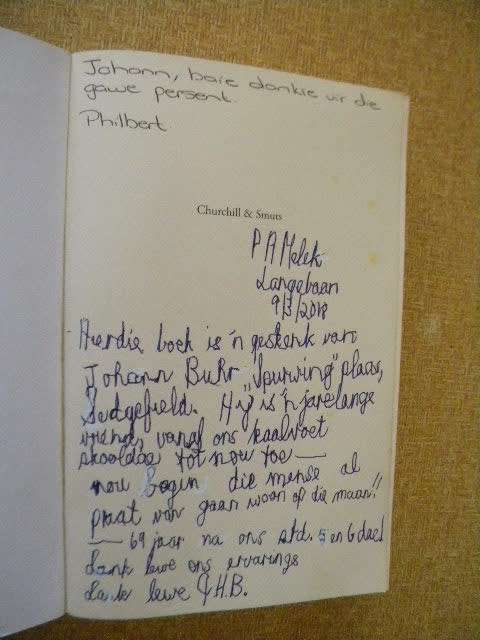 Johann, baie dankie vir die
gawe persent.
Philbert
Churchill & Smuts
P A Melck
Langebaan
9/3/2018
Hierdie boek is 'n geskenk van
Johann Buhr „Spurwing" plaas,
Sedgefield. Hy is 'n jarelange
vriend, vanaf ons kaalvoet
skooldae tot nou toe —
nou begin die mense al
praat van gaan woon op die maan!!
— 69 jaar na ons std. 5 en 6 dae!
Lank lewe ons ervarings
Lank lewe J.H.B.